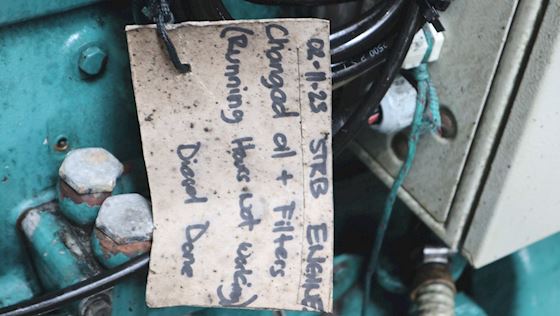 02-11-23 "STRB ENGINE
Changed oil + Filters
(Running Hours not working)
Diesel Done
2500